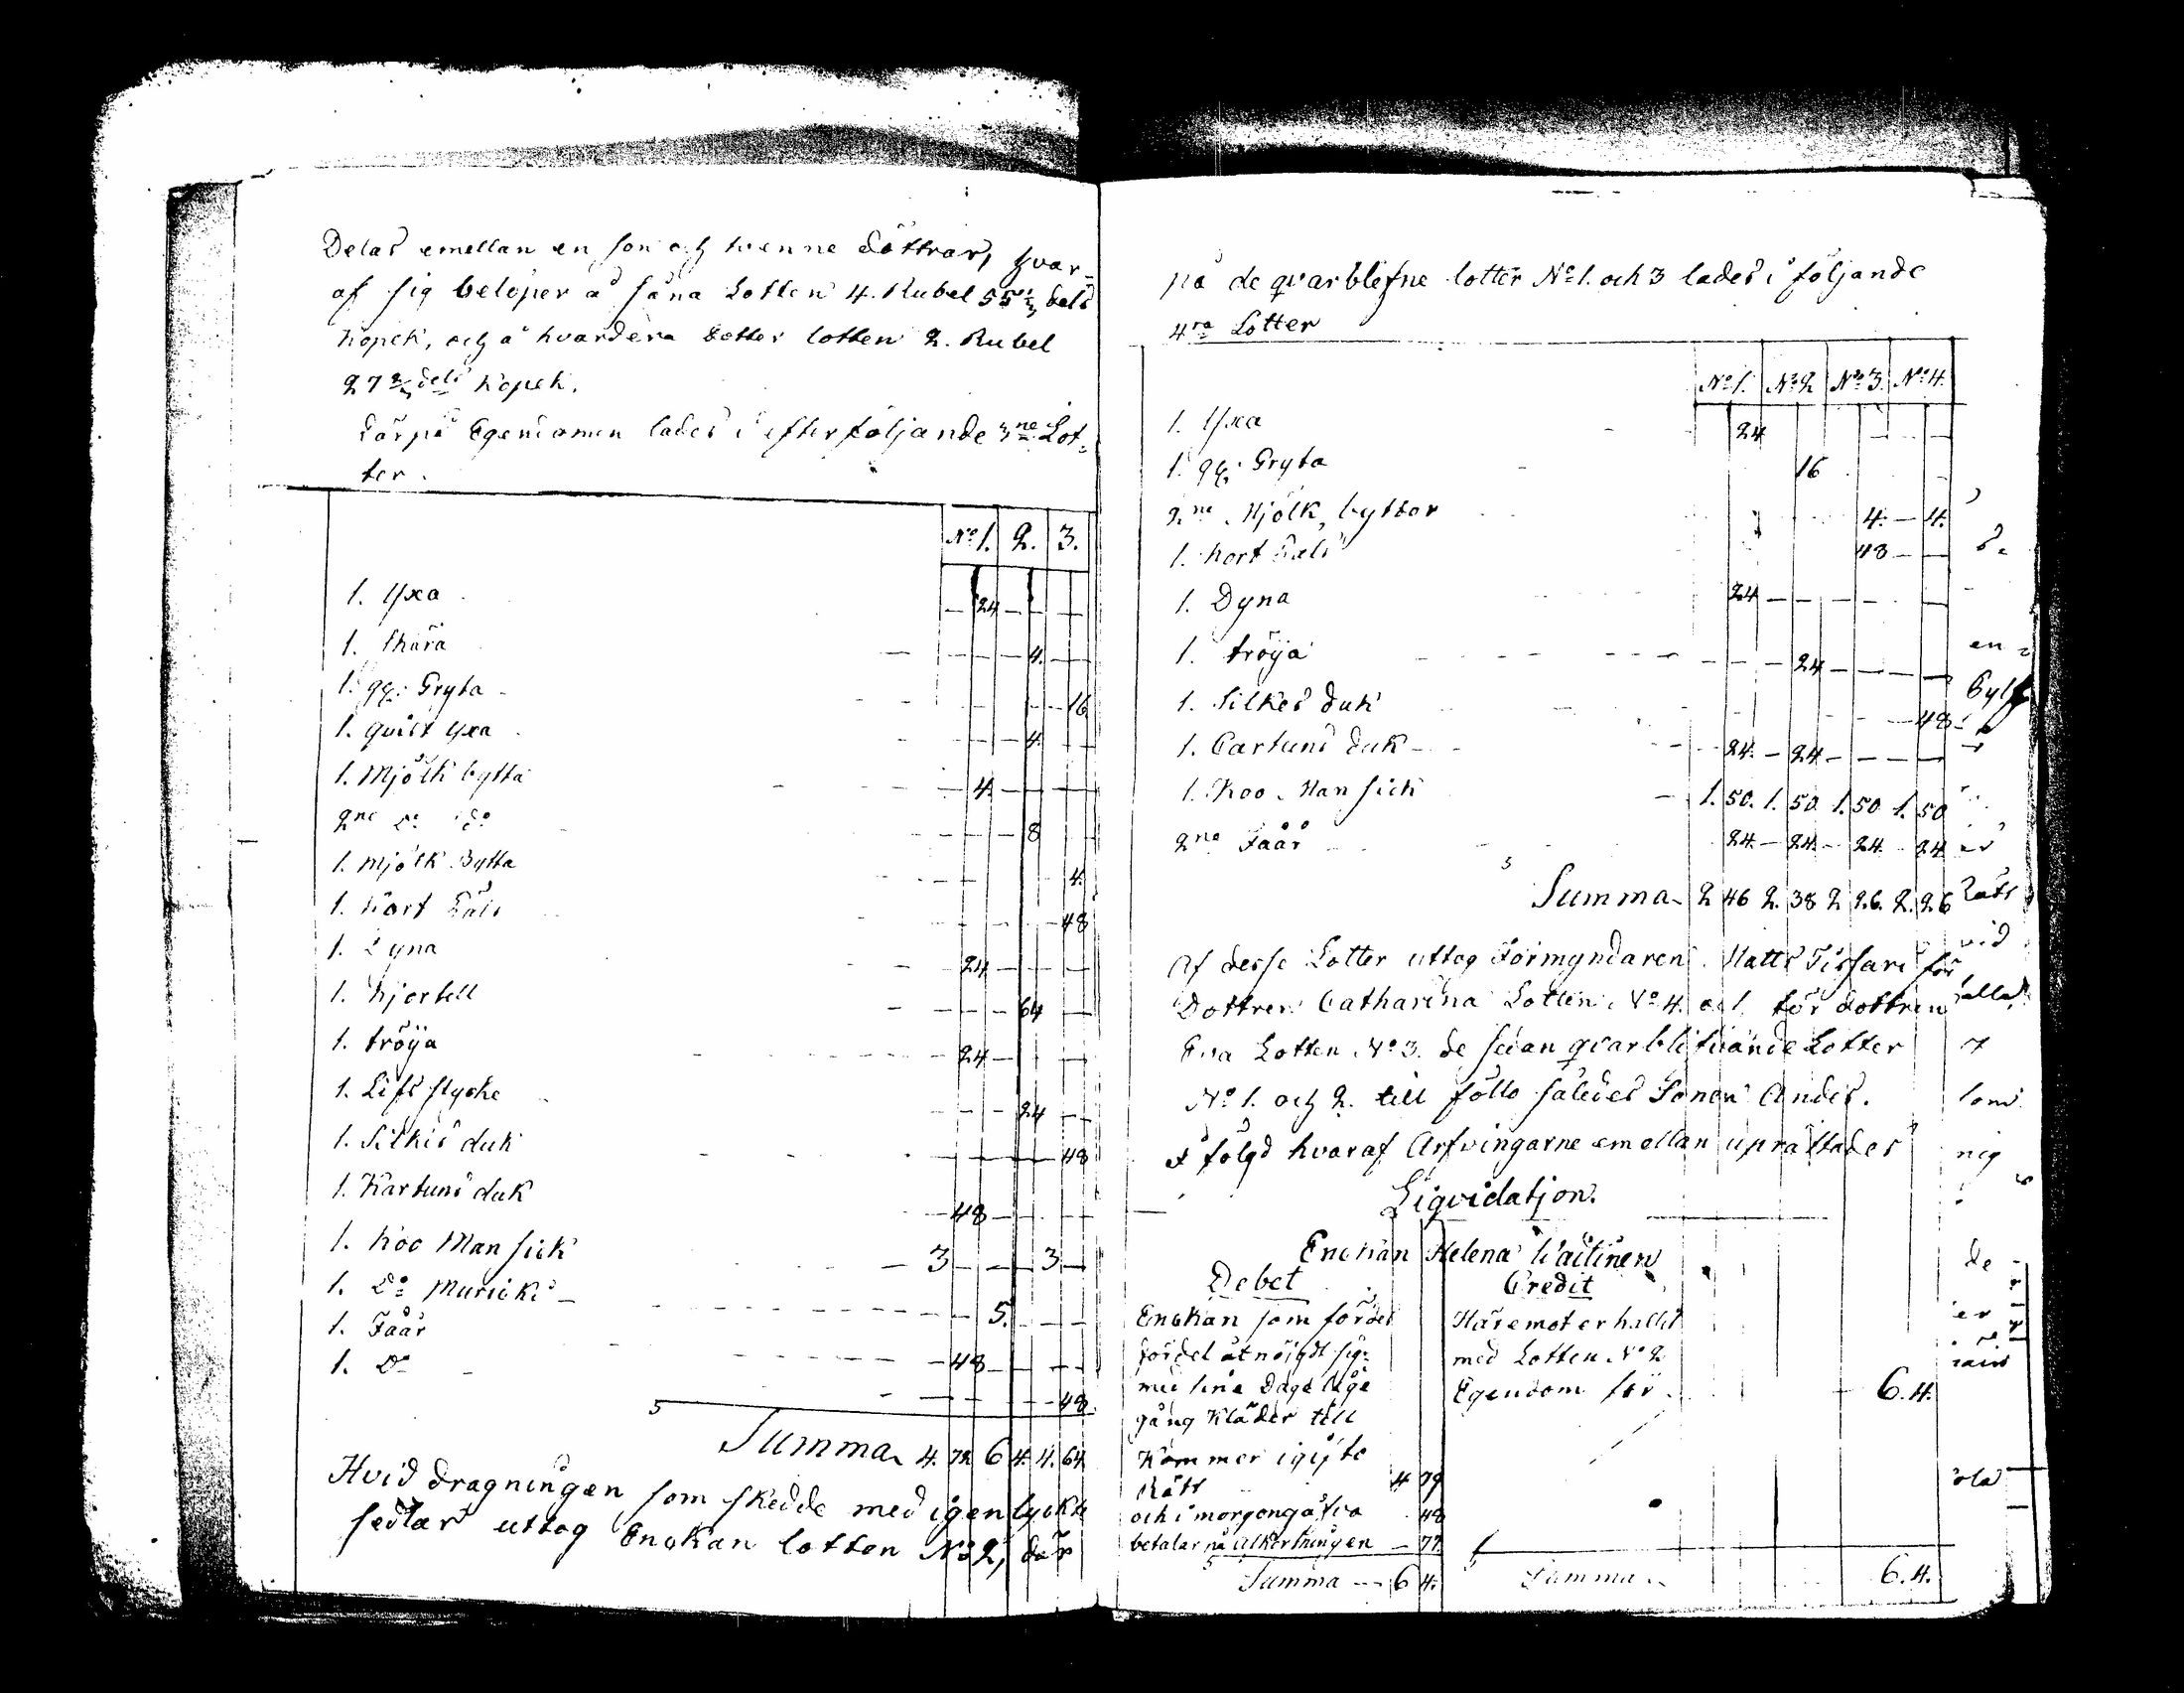 Delas emellan en son och tvenne döttrar, hvar-
af sig belöper å såna Lotten 4. Rubel 55 1/5 dels
Kopek, och å hvardera dotter lotten 2. Rubel
27 3/5 dels Kopek.
därpå Egendomen lades i efterföljande 3ne Lot-
ter.
No 1. 2. 3.
1. Yxa 24
1. skära 4.
1. Gryta 16
1. qvist yxa 4.
1. Mjölk bytta 4.
2ne do do 8
1. mjölk Bytta 4.
1. kort 48
1. Dyna 24
1. Kjortell 64
1. tröija 24
1. Lifstycke 24
1. Silkes duk 48
1. Kartuns duk 48
1. Koo Mansick 3 3
1. Do Muricki 5.
1. Fåår 48
1. Do 48
Summa 4. 72 6 4. 4. 64
Hvid dragningen som skedde med igenlyckte
sedlar uttog Enckan lotten No 2, där
på de qvarblefne lotter No 1. och 3 lades i följande
4ra Lotter
No 1. No 2 No 3. No 4.
1. Yxa 24
1. Gryta 16
2ne Mjölk, byttor 4. 4.
1. kort 48
1. Dyna 24
1. tröija 24
1. Silkes duk 48
1. Cartuns duk 24. 24
1. Koo Mansick 1. 50. 1. 50. 1. 50 1. 50
2ne Fåår 24. 24. 24. 24
Summa 2 46 2. 38 2 26. 2. 26
Af desse Lotter uttog Förmyndaren Matts Tissari för
Dottren Catharina Lotten No 4. och för dottren
Eva Lotten No 3. de sedan qvarblifvande Lotter
No 1. och 2. till föllo således Sonen Anders.
I följd hvaraf Arfvingarne emellan uprättades
Liqvidatjon.
Enckan Helena Vaitinen
Debet Credit
Enckan som fördes Häremot erhållit
fördel åtnöijdt sig med Lotten No 2
med sina Dage Egendom för 6. 4.
gång Kläder till
Kommer i gifto
Rätt 4 79
och i morgongåfva 48
betalar på afkortningen 77.
Summa 6 4. Summa 6. 4.